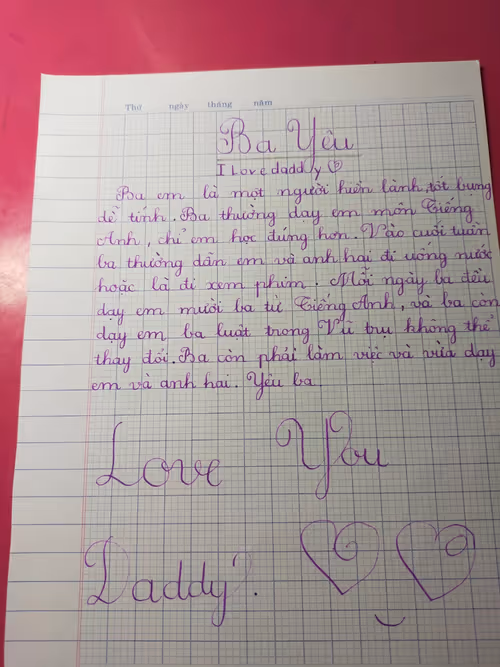 Thứ ngày tháng năm
Ba Yêu
I Love daddy
Ba em là một người hiền lành, tốt bụng
dễ tính. Ba thường dạy em môn Tiếng
Anh, chỉ em học đúng hơn. Vào cuối tuần
ba thường dẫn em và anh hai đi uống nước
hoặc là đi xem phim. Mỗi ngày ba đều
dạy em mười ba từ Tiếng Anh, và ba còn
dạy em ba luật trong Vũ trụ không thể
thay đổi. Ba còn phải làm việc và vừa dạy
em và anh hai. Yêu ba
Love You
Daddy'.